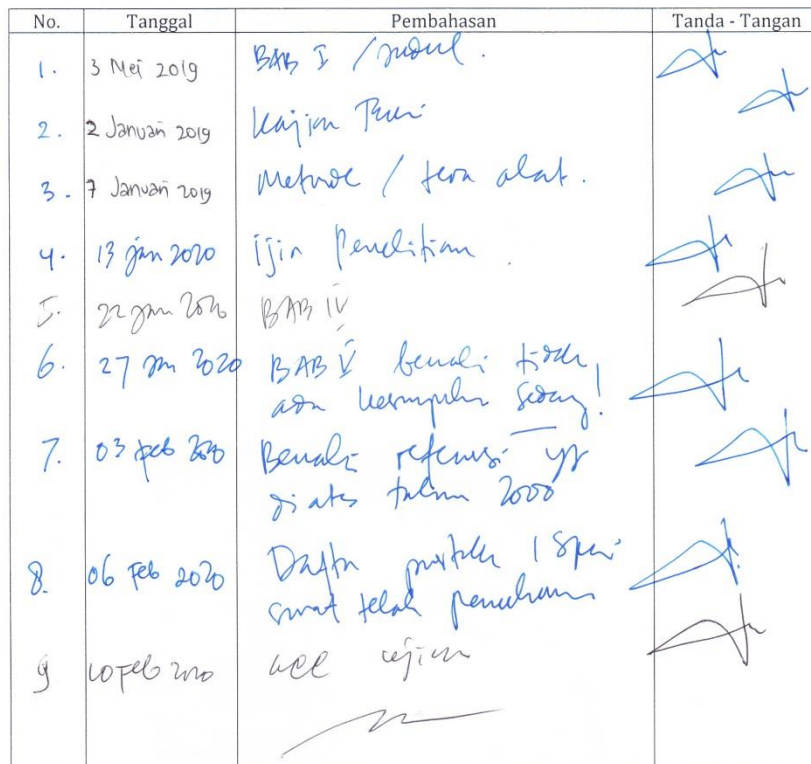 No. Tanggal Pembahasan Tanda - Tangan
1. 3 Mei 2019 BAB I / judul.
2. 2 Januari 2019 Kajian Teori
3. 7 Januari 2019 Metode / tera alat.
4. 13 jan 2020 ijin Penelitian.
5. 22 jan 2020 BAB IV
6. 27 jan 2020 BAB V tidak
ada kesimpulan
7. 03 feb 2020 referensi yg
di atas tahun 2000
8. 06 Feb 2020 Daftar pustaka
surat telah
9 10 Feb 2020 acc ujian